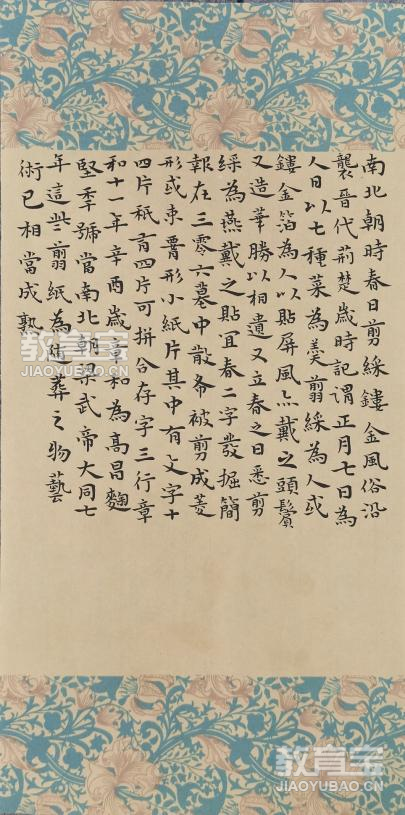 南北朝時春日剪綵鏤金風俗沿
襲晉代荊楚歲時記謂正月七日為
人日以七種菜為羹翦綵為人或
鏤金箔為人以貼屏風亦戴之頭鬢
又造華勝以相遺又立春之日悉剪
綵為燕戴之貼宜春二字發掘簡
報在三零六墓中散布被剪成菱
形或束腰形小紙片其中有文字十
四片祇有四片可拼合存字三行章
和十一年辛酉歲章和為高昌麴
堅年號當南北朝梁武帝大同七
年這些翦紙為隨葬之物藝
術已相當成熟
教育宝
JIAOYUBAO.CN
教育宝
JIAOYUBAO.CN
教育宝
JIAOYUBAO.CN